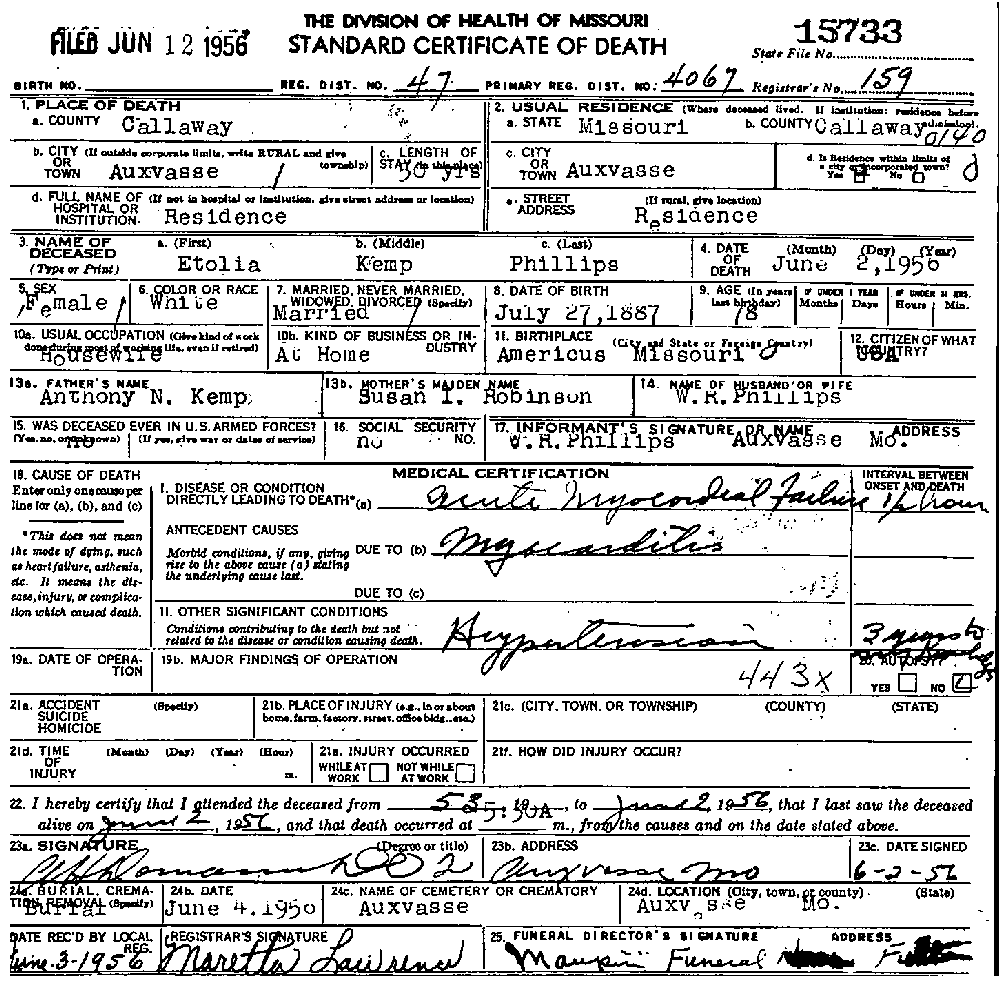 THE DIVISION OF HEALTH OF MISSOURI
STANDARD CERTIFICATE OF DEATH
FILED JUN 12 1956
15733
State File No.
BIRTH NO. REG. DIST. NO. 47 PRIMARY REG. DIST. NO. 4067 Registrar's No. 159
1. PLACE OF DEATH
a. COUNTY Callaway
2. USUAL RESIDENCE (Where deceased lived. If institution: residence before admission).
a. STATE Missouri b. COUNTY Callaway 0140
b. CITY (If outside corporate limits, write RURAL and give township)
OR
TOWN Auxvasse
c. LENGTH OF
STAY (in this place)
50 yrs
c. CITY
OR
TOWN Auxvasse
d. Is Residence within limits of
a city or incorporated town?
Yes No
d. FULL NAME OF (If not in hospital or institution, give street address or location)
HOSPITAL OR
INSTITUTION. Residence
e. STREET (If rural, give location)
ADDRESS Residence
3. NAME OF
DECEASED
(Type or Print)
a. (First) b. (Middle) c. (Last)
Etolia Kemp Phillips
4. DATE (Month) (Day) (Year)
OF
DEATH June 2,1956
5. SEX
Female
6. COLOR OR RACE
White
7. MARRIED, NEVER MARRIED,
WIDOWED, DIVORCED (Specify)
Married
8. DATE OF BIRTH
July 27,1887
9. AGE (In years
last birthday)
78
IF UNDER 1 YEAR
Months Days
IF UNDER 24 HRS.
Hours Min.
10a. USUAL OCCUPATION (Give kind of work
done during most of working life, even if retired)
Housewife
10b. KIND OF BUSINESS OR INDUSTRY
At Home
11. BIRTHPLACE (City and State or Foreign Country)
Americus Missouri
12. CITIZEN OF WHAT
COUNTRY?
USA
13a. FATHER'S NAME
Anthony N. Kemp
13b. MOTHER'S MAIDEN NAME
Susan I. Robinson
14. NAME OF HUSBAND OR WIFE
W.R.Phillips
15. WAS DECEASED EVER IN U.S. ARMED FORCES?
(Yes, no, or unknown) (If yes, give war or dates of service)
no
16. SOCIAL SECURITY
NO.
no
17. INFORMANT'S SIGNATURE OR NAME ADDRESS
W.R.Phillips Auxvasse Mo.
18. CAUSE OF DEATH
Enter only one cause per
line for (a), (b), and (c)
*This does not mean
the mode of dying, such
as heart failure, asthenia,
etc. It means the disease, injury, or complication which caused death.
MEDICAL CERTIFICATION
I. DISEASE OR CONDITION
DIRECTLY LEADING TO DEATH*(a) Acute Myocardial Failure
INTERVAL BETWEEN
ONSET AND DEATH
1/2 hour
ANTECEDENT CAUSES
Morbid conditions, if any, giving
rise to the above cause (a) stating
the underlying cause last.
DUE TO (b) Myocarditis
DUE TO (c)
II. OTHER SIGNIFICANT CONDITIONS
Conditions contributing to the death but not
related to the disease or condition causing death.
Hypertension
3 years to
19a. DATE OF OPERATION
19b. MAJOR FINDINGS OF OPERATION
443X
20. AUTOPSY?
YES NO
21a. ACCIDENT (Specify)
SUICIDE
HOMICIDE
21b. PLACE OF INJURY (e.g., in or about
home, farm, factory, street, office bldg., etc.)
21c. (CITY, TOWN, OR TOWNSHIP) (COUNTY) (STATE)
21d. TIME (Month) (Day) (Year) (Hour)
OF
INJURY m.
21e. INJURY OCCURRED
WHILE AT WORK NOT WHILE AT WORK
21f. HOW DID INJURY OCCUR?
22. I hereby certify that I attended the deceased from 53, 19, to June 2, 1956, that I last saw the deceased
alive on June 2, 1956, and that death occurred at 5:30A m., from the causes and on the date stated above.
23a. SIGNATURE (Degree or title)
DO 2
23b. ADDRESS
Auxvasse Mo
23c. DATE SIGNED
6-2-56
24a. BURIAL, CREMATION, REMOVAL (Specify)
Burial
24b. DATE
June 4.1956
24c. NAME OF CEMETERY OR CREMATORY
Auxvasse
24d. LOCATION (City, town, or county) (State)
Auxvasse Mo.
DATE REC'D BY LOCAL
REG.
June-3-1956
REGISTRAR'S SIGNATURE
Maretta Lawrence
25. FUNERAL DIRECTOR'S SIGNATURE ADDRESS
Maupin Funeral